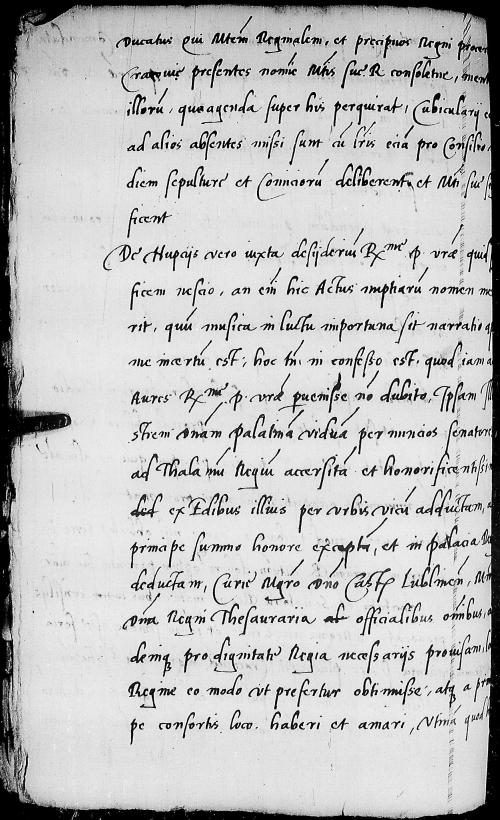 Ducatus qui Mtem Reginalem, et precipuos Regni procer
presentes noie Mtis sue R consoletur, ment
illorū, quæ agenda super his perquirat, Cubicularij
ad alios absentes missi sunt cū lris eciā pro Consilio,
diem sepulture et Comiciorū deliberent et Mti sue s
ficent
De Nupcijs vero iuxta desijderiū Rme p. vræ quid
ficem nescio, an em hic Actus nuptiarū nomen me
rit, quū musica in luctu importuna sit narratio q
me incertū est, hoc tn in confesso est, quod iam a
Aures Rme p. vræ puenisse nō dubito, Ipsam Ill
strem dnam palatinā viduā per nuncios senatore
ad Thalamū Regiū accersitā et honorificentissi
ded ex Edibus illius per vrbis vicū adductam, a
principe summo honore exceptā, et in palacia
deductam, Curie Mgro dno Cast Lublinen,
dna Regni Thesauraria ab officialibus omibus, a
demq pro dignitate Regia necessarijs prouisam,
Regine eo modo vt prefertur obtinuisse, atq a prin
pe consortis loco haberi et amari, Vtina quod